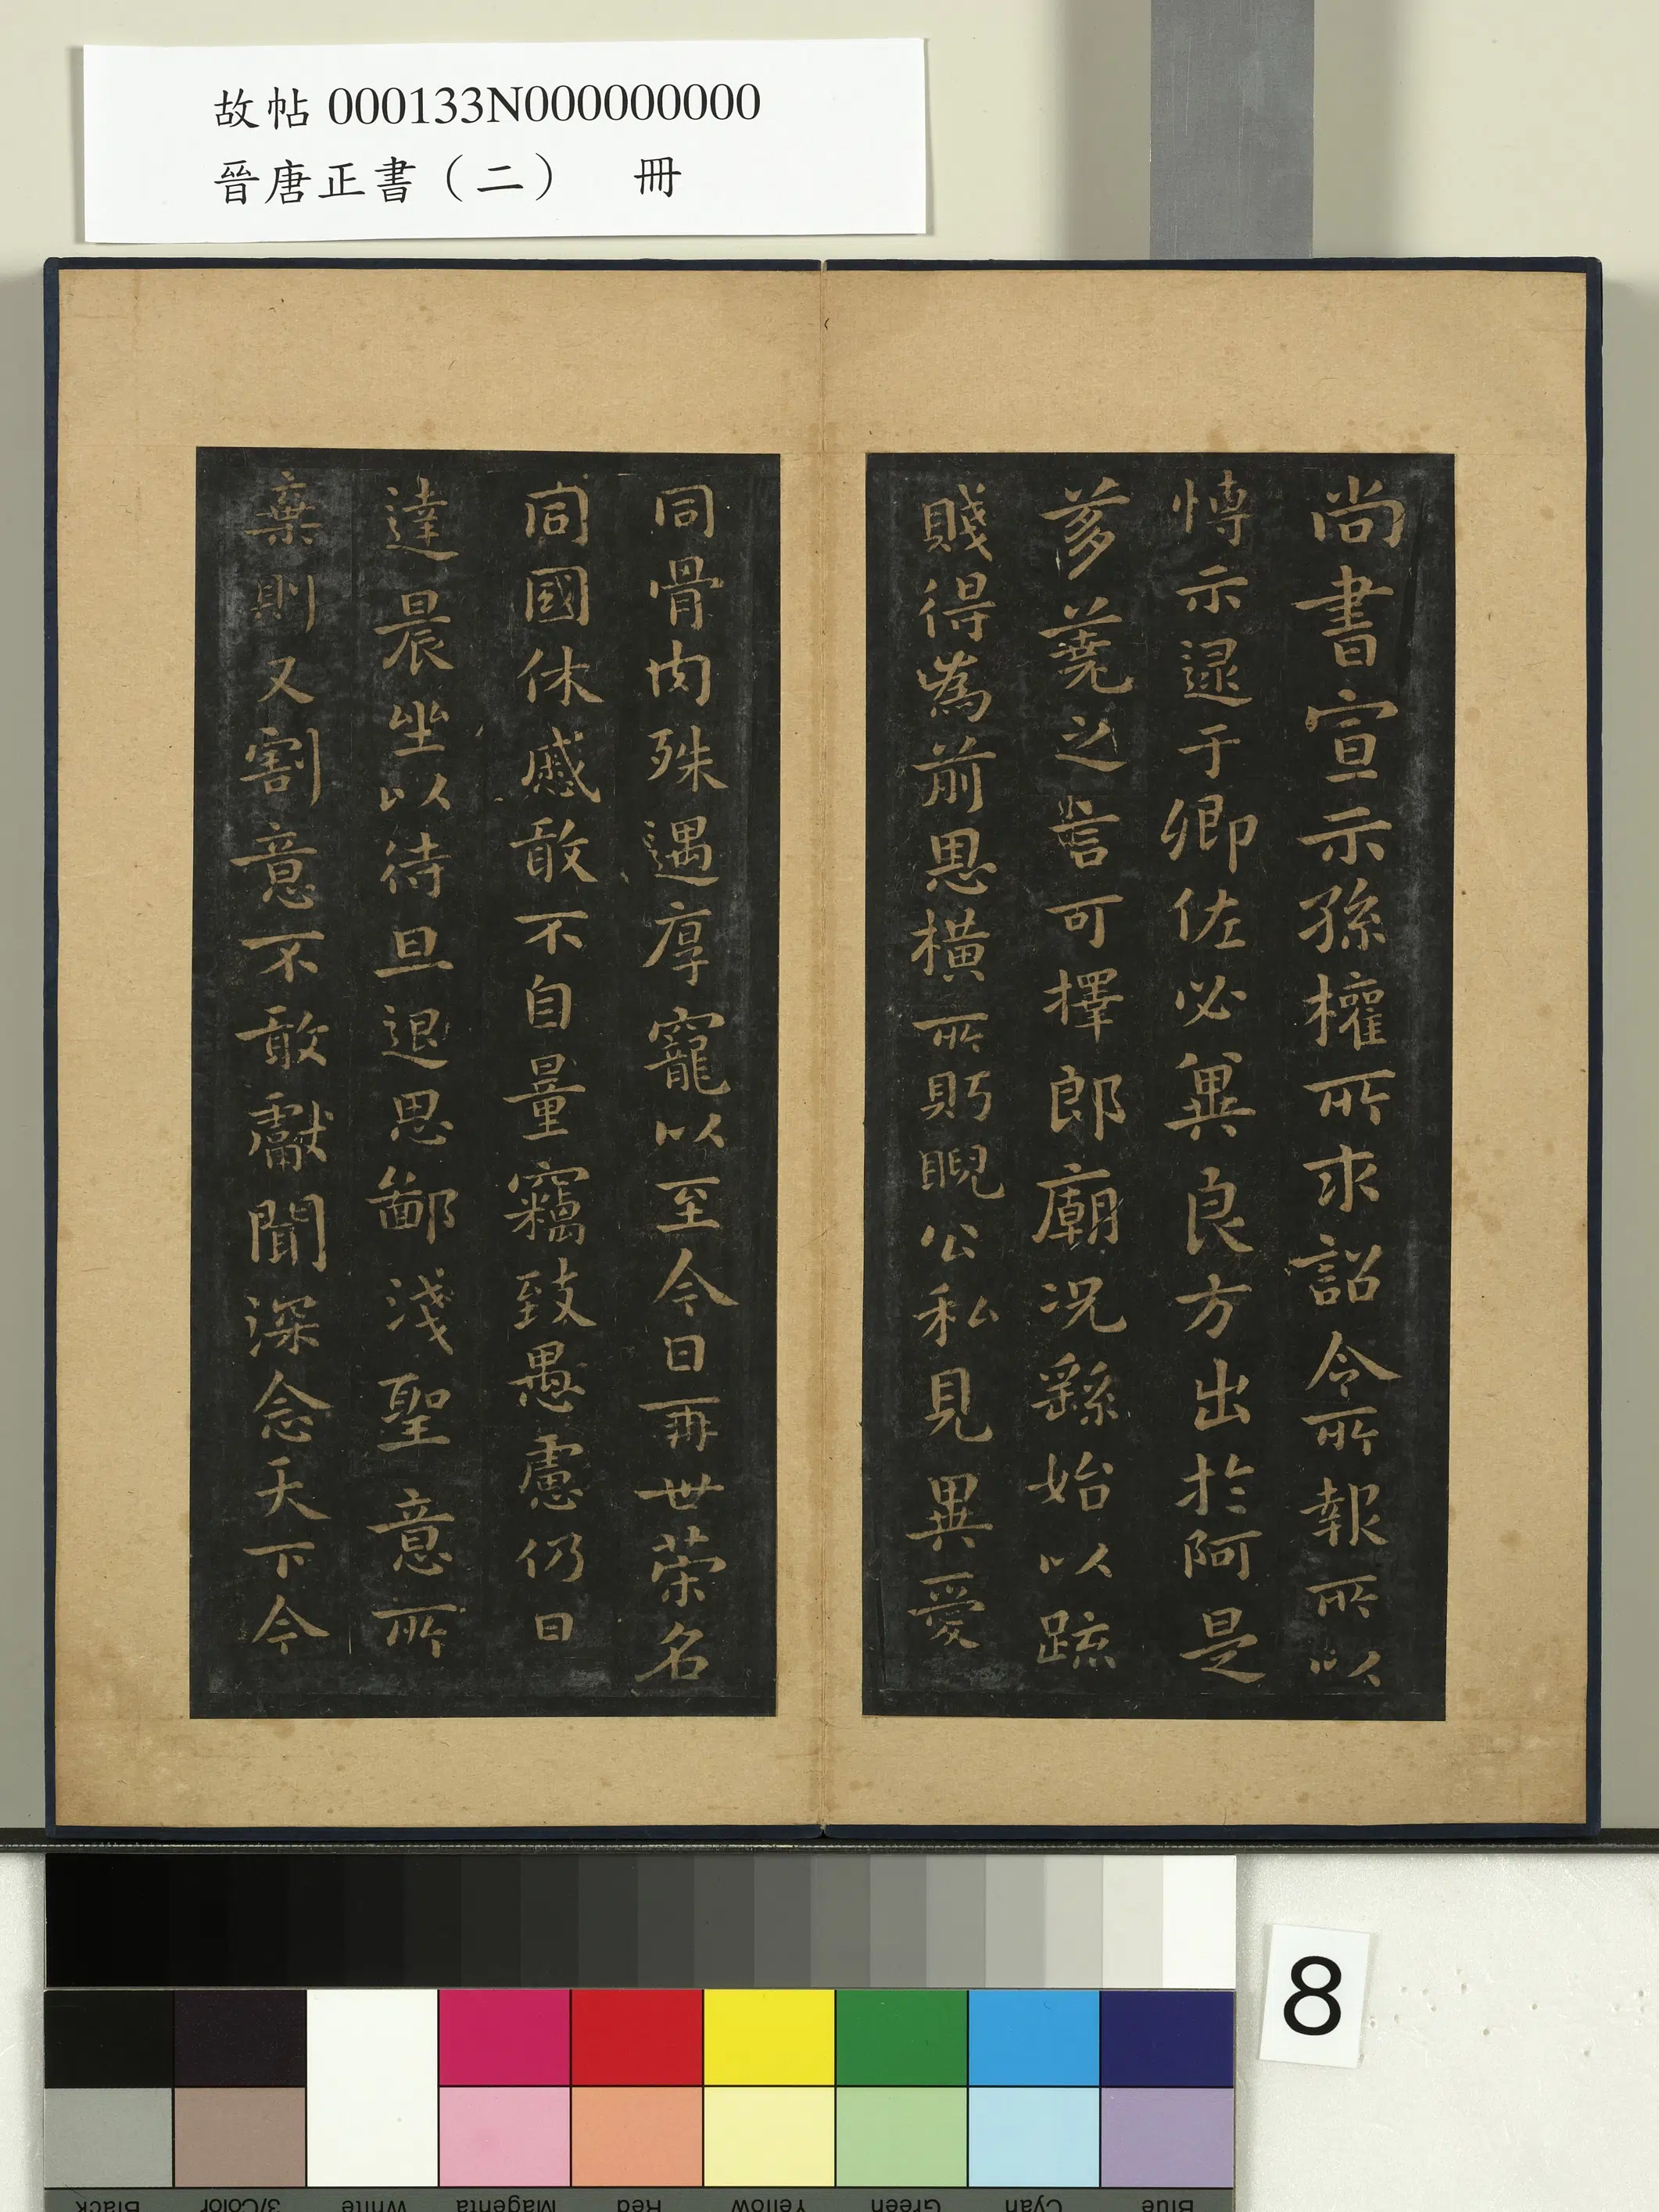 故帖000133N000000000
晉唐正書（二）　冊
尚書宣示孫權所求詔令所報所以
愽示逮于卿佐必兾良方出於阿是
芻蕘之言可擇郎廟况繇始以疏
賤得為前恩橫所盻睨公私見異愛
同骨肉殊遇厚寵以至今日再世荣名
同國休慼敢不自量竊致愚慮仍日
達晨坐以待旦退思鄙淺聖意所
棄則又割意不敢獻聞深念天下今
8
Black
3/Color
White
Magenta
Red
Yellow
Green
Cyan
Blue